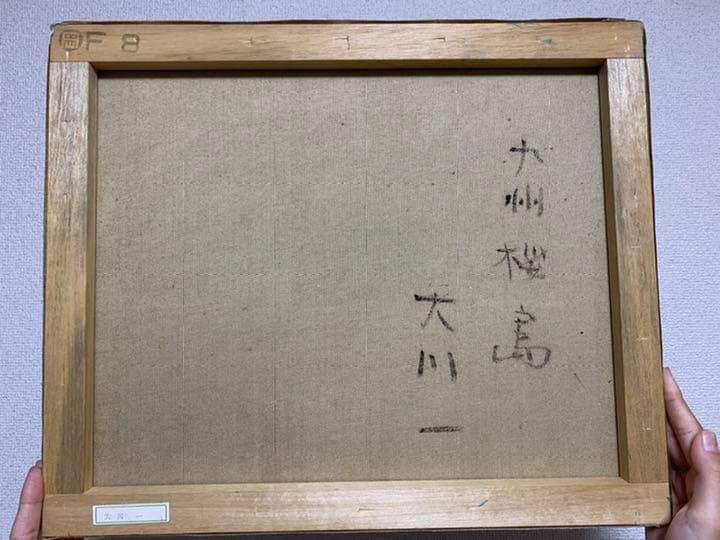 岡 F 8
九州桜島
大川一
大川一